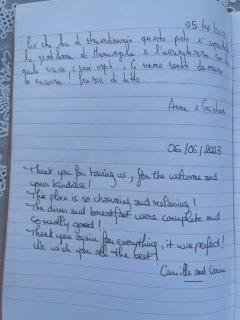 05/06/2023
Ciò che fa di straordinario questo posto è soprattutto
la gentilezza di Mariangela e l'accuratezza con la
quale riceve i suoi ospiti. Ci siamo sentiti davvero
in vacanza. Grazie di tutto.
Anna e Cristian
06/06/2023
Thank you for having us, for the welcome and
your kindness!
This place is so charming and relaxing!
The diner and breakfast were complete and
so really good!
Thank you again for everything, it was perfect!
We wish you all the best!
Camille and